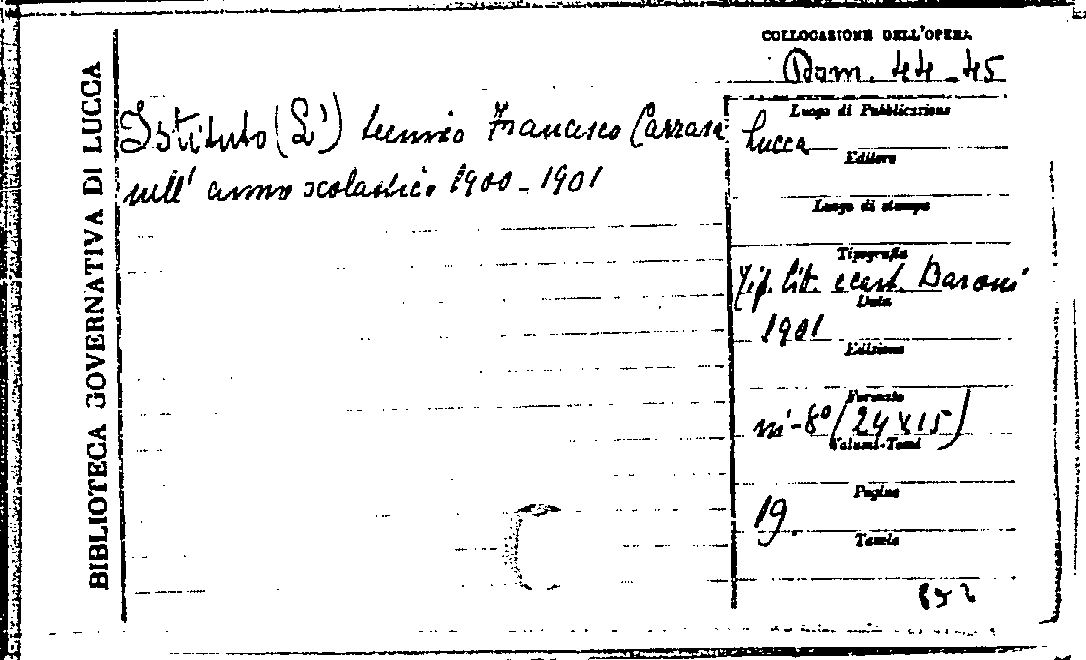 BIBLIOTECA GOVERNATIVA DI LUCCA
COLLOCAZIONE DELL'OPERA
Dom. 44-45
Istituto (L') tecnico Francesco Carrara
nell' anno scolastico 1900-1901
Luogo di Pubblicazione
Lucca
Editore
Luogo di stampa
Tipografia
Tip. lit. e cart. Baroni
Data
1901
Edizione
Formato
in-8° (24 x 15)
Volumi-Tomi
Pagine
19.
Tavole